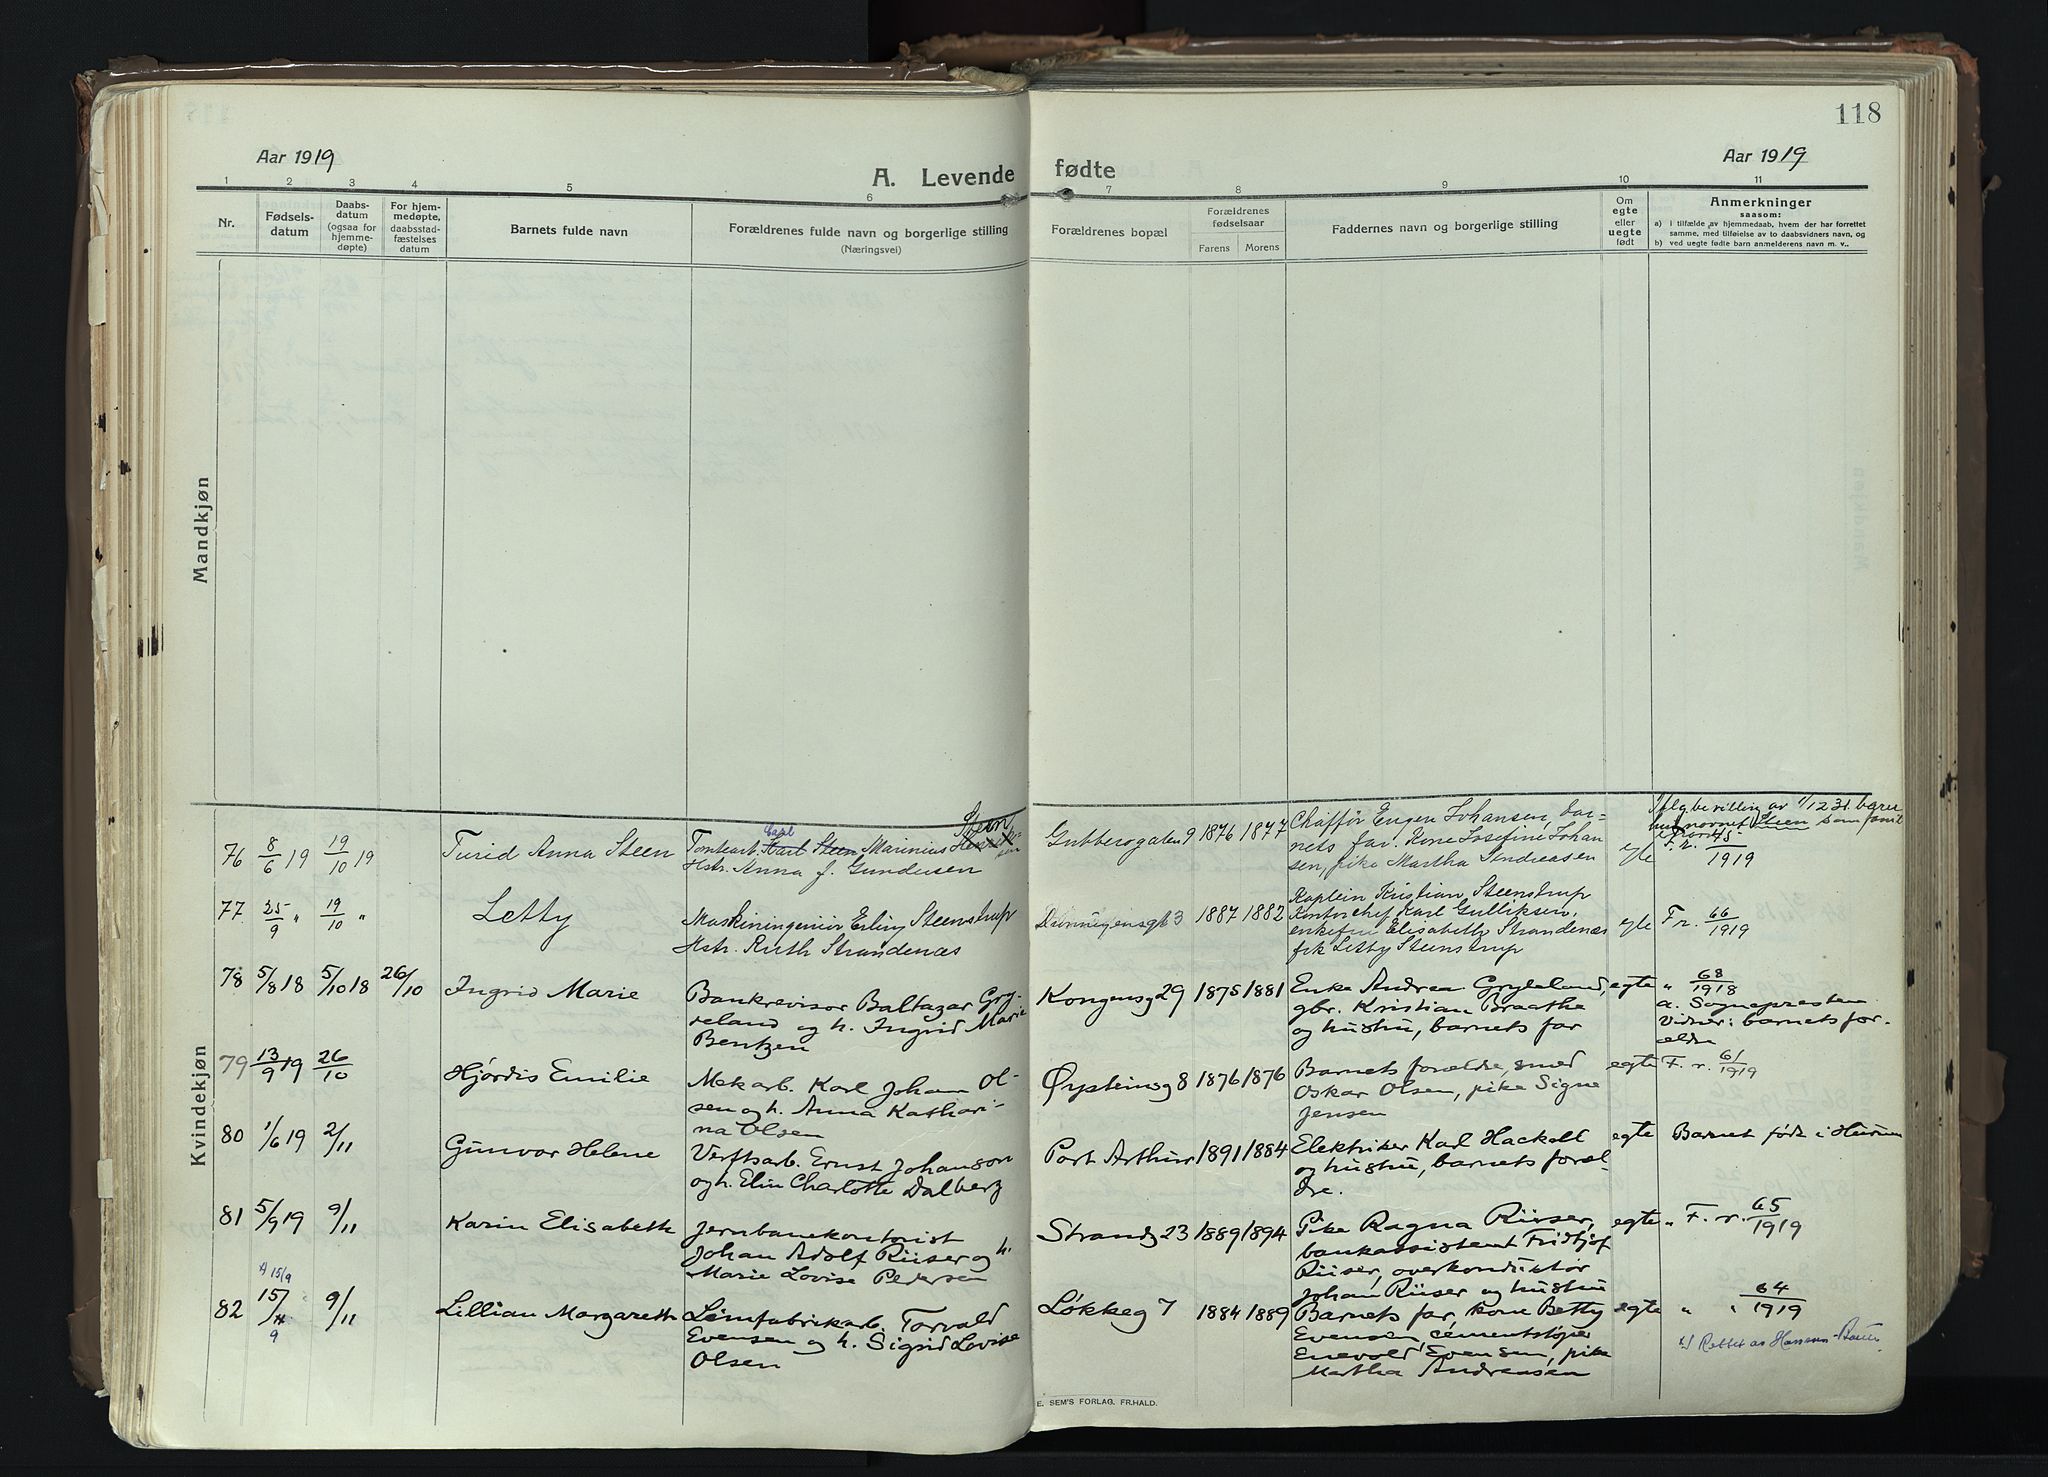 118
Aar 1919
A. Levende fødte
Aar 1919
1 2 3 4 5 6 7 8 9 10 11
Nr.
Fødsels-
datum
Daabs-
datum
(ogsaa for
hjemme-
døpte)
For hjem-
medøpte,
daabsstad-
fæstelses
datum
Barnets fulde navn
Forældrenes fulde navn og borgerlige stilling
(Næringsvei)
Forældrenes bopæl
Forældrenes
fødselsaar
Farens Morens
Faddernes navn og borgerlige stilling
Om
egte
eller
uegte
født
Anmerkninger
saasom:
a) i tilfælde av hjemmedaab, hvem der har forrettet
samme, med tilføielse av to daabsvidners navn, og
b) ved uegte fødte barn anmelderens navn m. v..
Mandkjøn
Kvindekjøn
76 8/6 19 19/10 19 Turid Anna Steen
Tomtearb. Karl Steen Marinius
Carl
Steen
Hstr. Anna f. Gundersen
Gubberogaten 9 1876 1877
Chaffør Eugen Johansen, bar-
nets far. Kone Josefine Johan
sen, pike Martha Andreasen
egte
F. r. 45/1919
77 25/9 " 19/10 " Letty
Maskiningeniør Erling Steenstrup
Hstr. Ruth Strandenæs
1887 1882
Kaptein Kristian Steenstrup
Kontorchef Karl Gulliksen,
enkefru Elisabeth Strandenæs
frk Letty Steenstrup
egte F r. 66/1919
78 5/8 18 5/10 18 26/10 Ingrid Marie
Bankrevisor Baltazar Gry-
teland og h. Ingrid Marie
Bentzen
Kongensg 29 1875 1881
Enke Andrea Gryteland,
gbr. Kristian Braathe
og hustru, barnets far
egte " 68/1918
a. Sognepresten
Vidner: barnets for-
ældre
79 13/9 19 26/10 Hjördis Emilie
Mek arb. Karl Johan Ol-
sen og h. Anna Kathari-
na Olsen
Øysteinsg 8 1876 1876
Barnets forældre, smed
Oskar Olsen, pike Signe
Jensen
egte F. r. 61/1919
80 1/6 19 2/11 Gunvor Helene
Verftsarb. Ernst Johanson
og h. Elin Charlotte Dalberg
Port Arthur 1891 1884
Elektriker Karl Hackell
og hustru, barnets foræl-
dre.
egte Barnet født i Hurum
81 5/9 19 9/11 Karin Elisabeth
Jernbanekontorist
Johan Adolf Riiser og h.
Marie Lovise Pedersen
Strandg 23 1889 1894
Pike Ragna Riiser,
bankassistent Fridtjof
Riiser, overkonduktør
Johan Riiser og hustru
egte " F. r. 65/1919
82 15/11 9 9/11 Lillian Margareth
15/9
Limfabrikarb. Torvald
Evensen og h. Sigrid Lovise
Olsen
Løkkeg 7 1884 1889
Barnets far, kone Betty
Evensen, cementstøper
Enevold Evensen, pike
Martha Andreasen
egte " " 64/1919
Rettet av Hansson-Bauer
E. SEM'S FORLAG. FR.HALD.